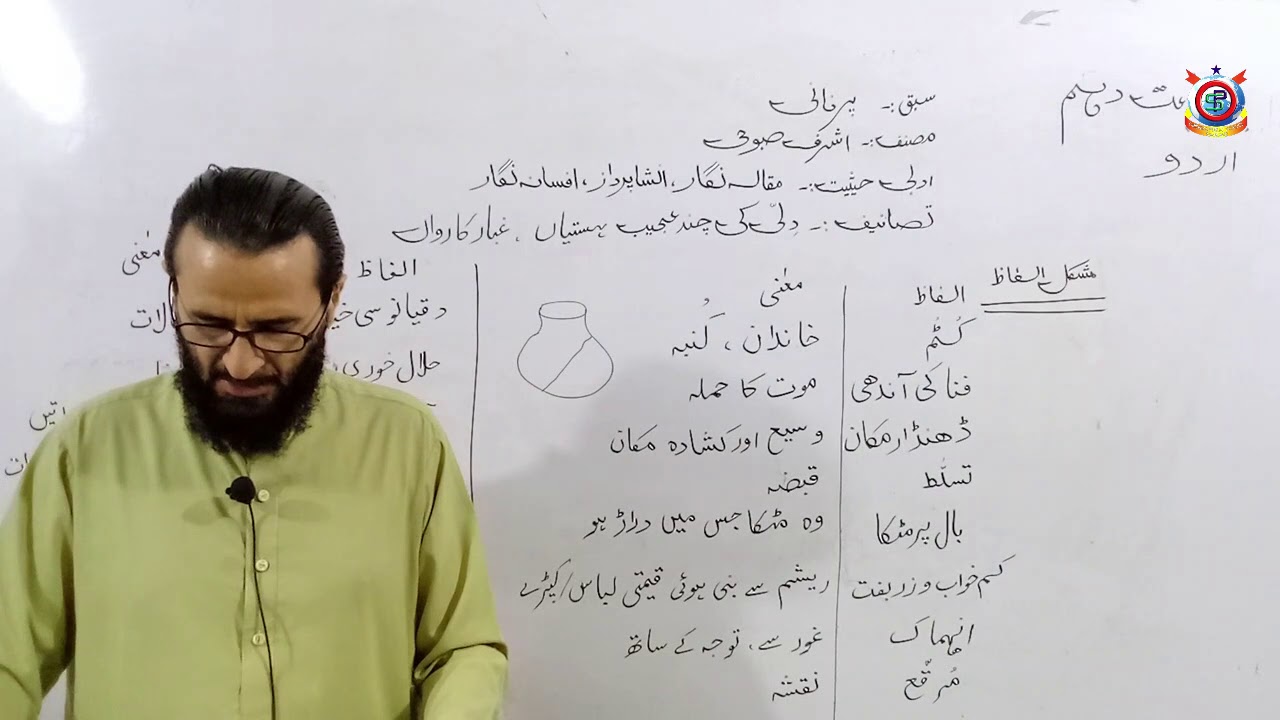 دہم
اردو
سبق :۔ پرنانی
مصنف :۔ اشرف صبوحی
ادبی حیثیت :۔ مقالہ نگار، انشا پرداز، افسانہ نگار
تصانیف :۔ دِلّی کی چند عجیب ہستیاں ، غبار کارواں
مشکل الفاظ
الفاظ معٰنی
کُٹُم خاندان ، کُنبہ
فنا کی آندھی موت کا حملہ
ڈھنڈار مکان وسیع اور کشادہ مکان
تسلّط قبضہ
بال پر مٹکا وہ مٹکا جس میں دراڑ ہو
کم خواب و زربفت ریشم سے بنی ہوئی قیمتی لباس/کپڑے
انہماک غور سے، توجہ کے ساتھ
مُرقّع نقشہ
الفاظ معٰنی
دقیانوسی
حلال خوری